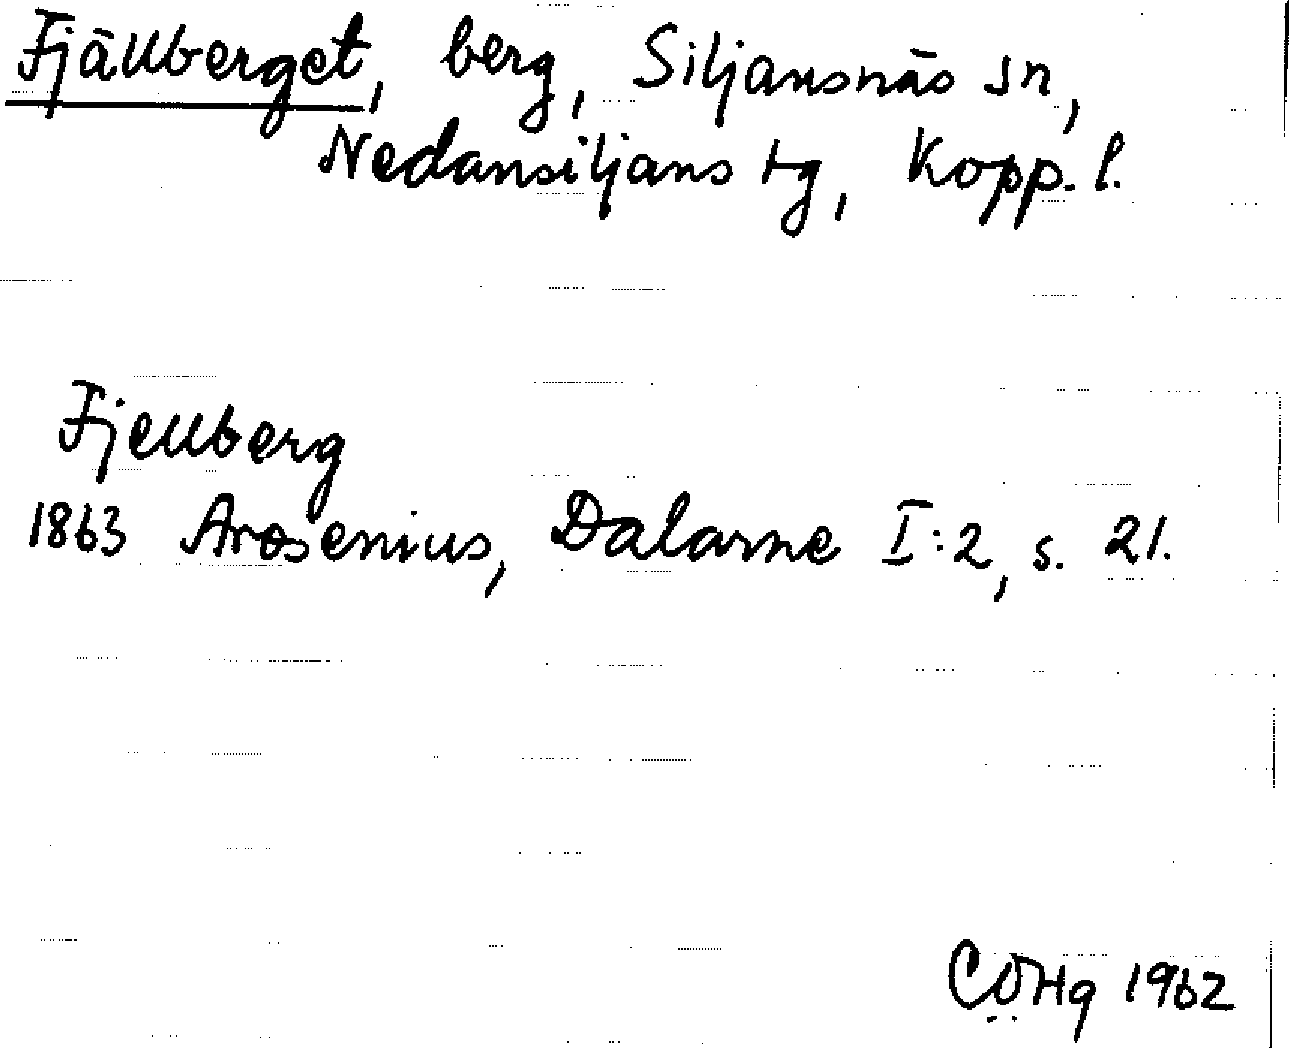 Fjällberget, berg, Siljansnäs sn,
Nedansiljans tg, Kopp. l.
Fjellberg
1863 Arosenius, Dalarne I:2, s. 21.
CÖHg 1962